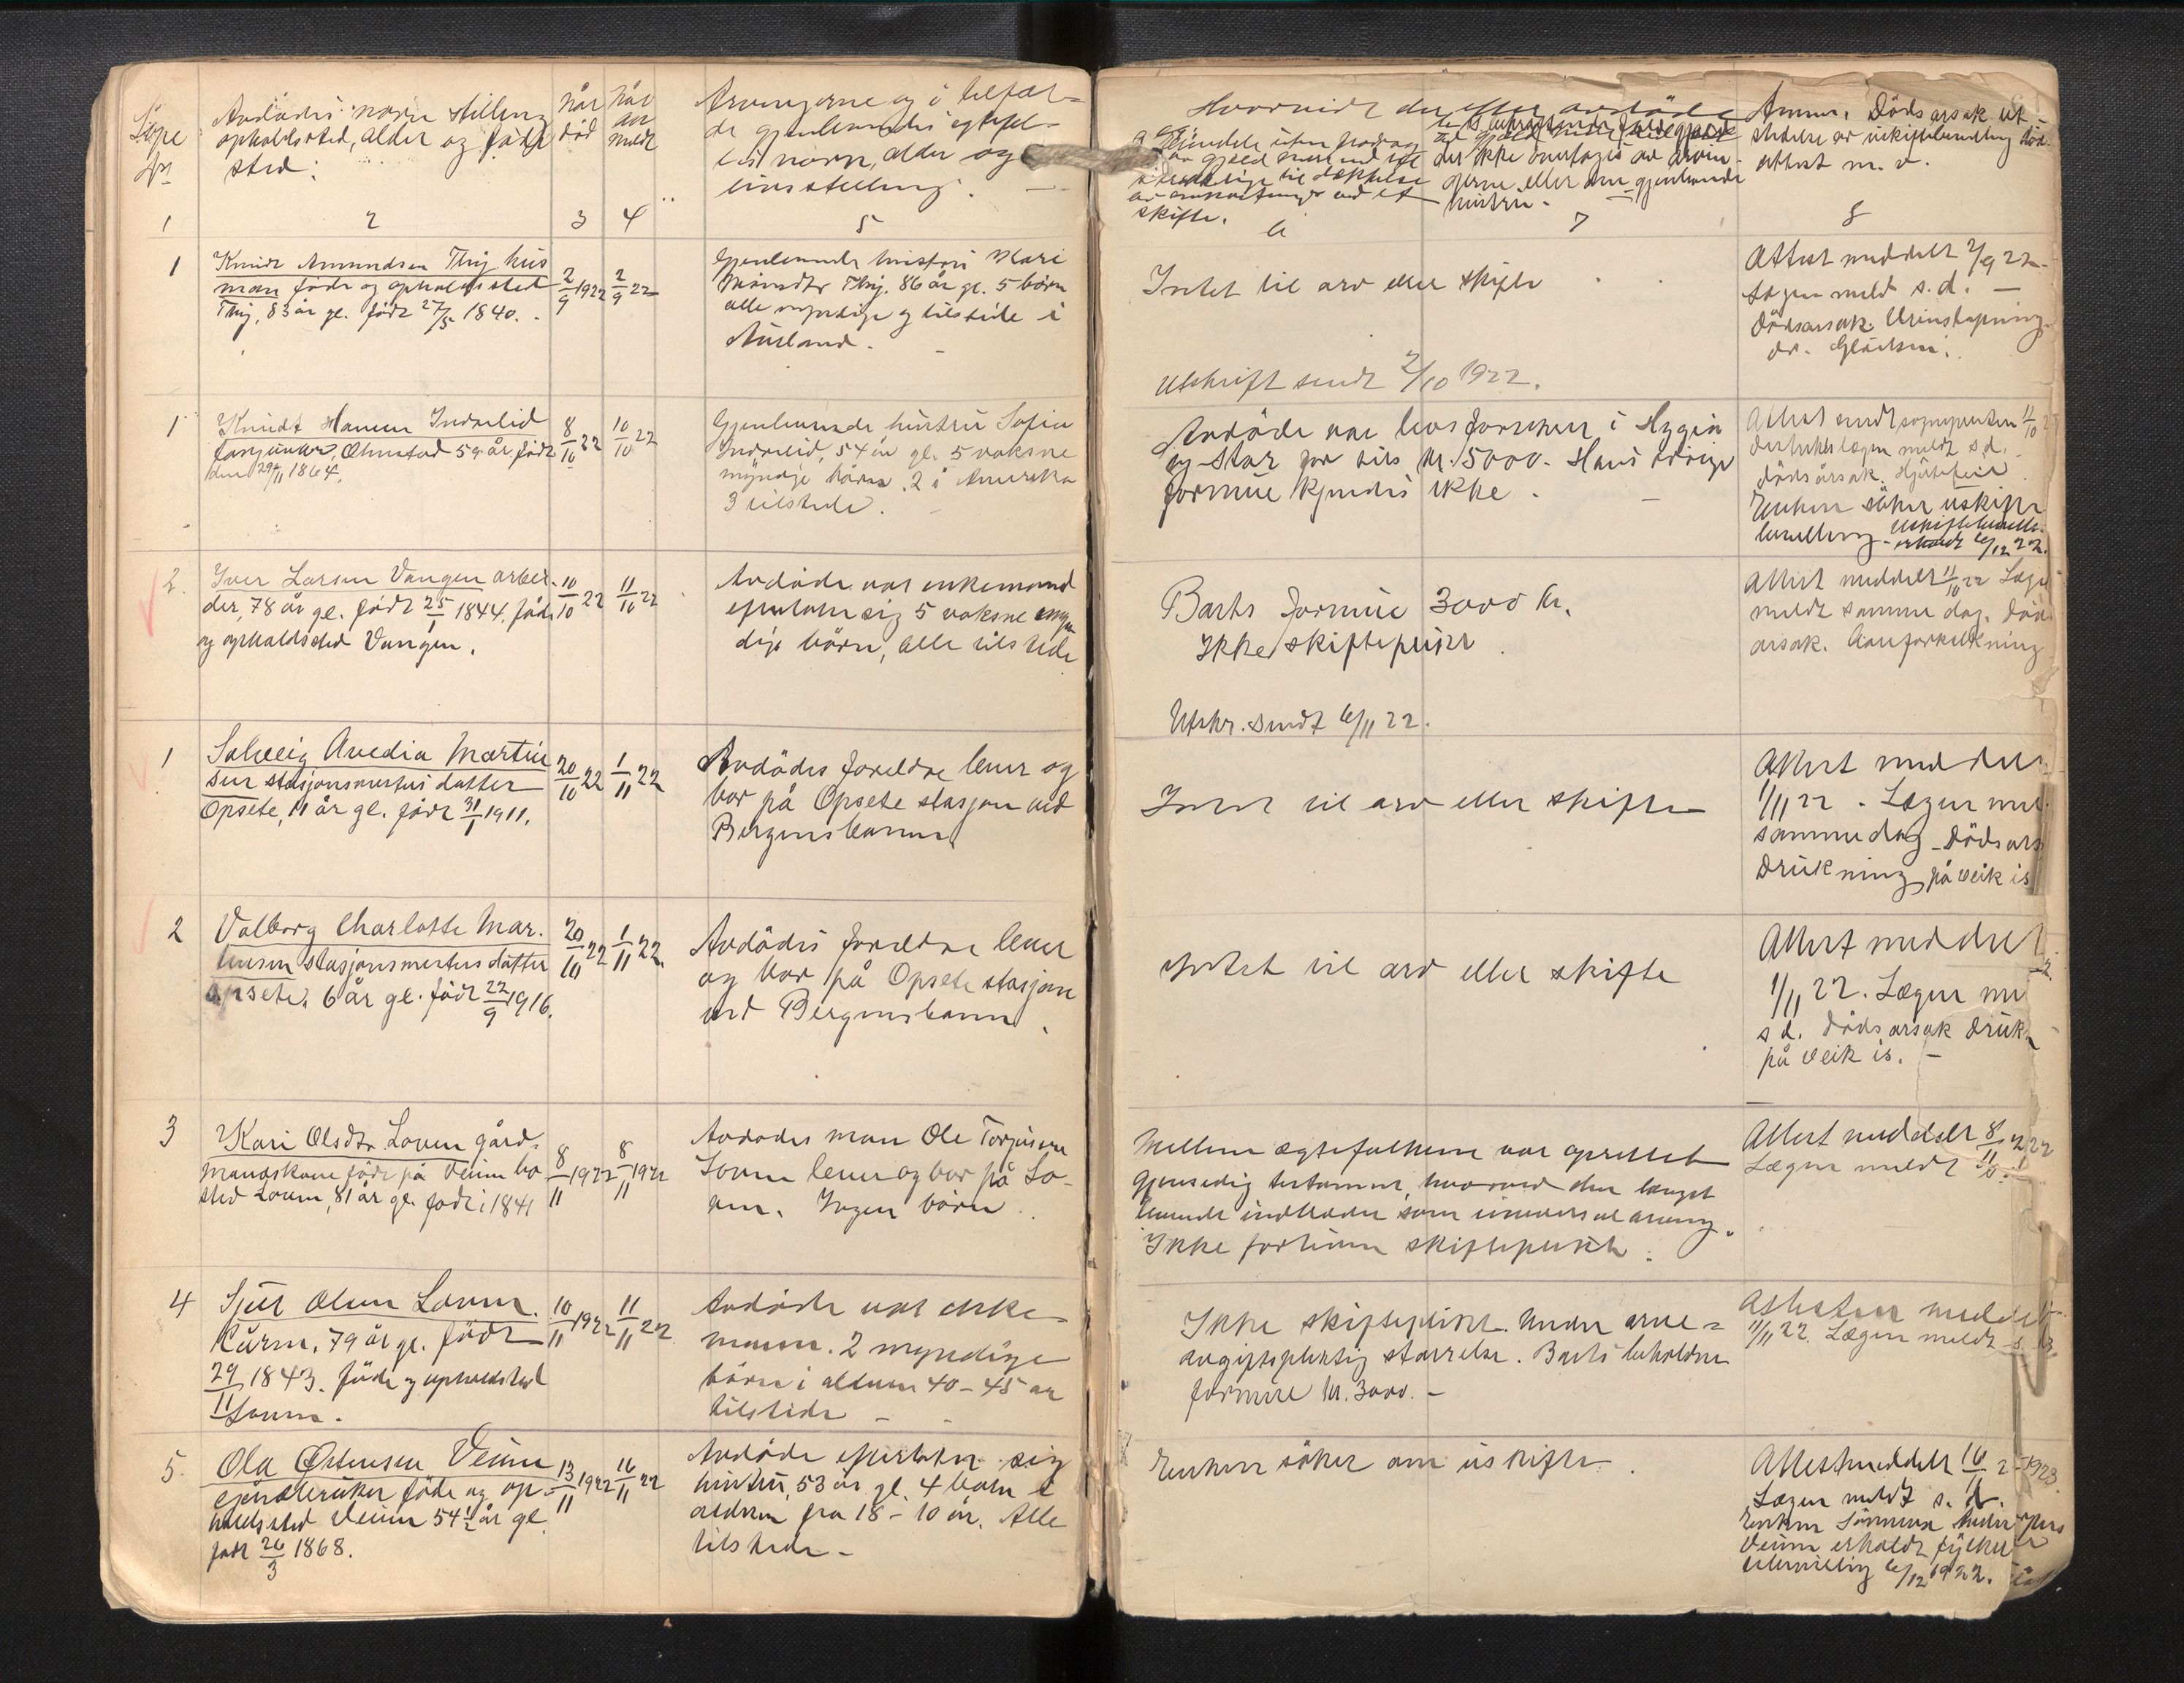 Löpe
No
Avdödes navn stilling
opholdssted, alder og føde
sted.
Når
død
Når
an
meldt
Arvingerne og i tilfæl-
de gjenlevendes egtefel-
les navn, alder og
livsstilling.
Hvorvidt der efter avdöde
skifte.
der ikke overtages av arvin-
gerne eller den gjenlevende
hustru.
Anm. Dödsarsak ut-
stedelse av uskiftebevilling död-
attest m. v.
1
2
3
4
5
6
7
8
1
Knut Amundsen Thij hus
man føde og opholdssted
Thij, 83 år gl. født 27/5 1840.
2/9 1922
2/9 22
Gjenlevende hustru Mari
Thij. 86 år gl. 5 börn
alle myndige og tilstede i
Aurland.
Intet til arv eller skifte
Attest meddelt 2/9 22
Lægen meldt s. d.
Dödsarsak. Urinstopning
Utskrift sendt 2/10 1922.
1
Knudt Hansen Indrelid
Ohnstad 59 år født
den 29/11 1864.
8/10 22
10/10 22
Gjenlevende hustru Sofia
Indrelid, 54 år gl. 5 voksne
myndige börn. 2 i Amerika
3 tilstede.
Avdöde var livsforsikret i Hygea
og Star for tils. kr. 5000. Hans övrige
formue kjendes ikke.
Attest sendt sognepresten 12/10
Distriktslægen meldt s. d.
dödsårsak. Hjertefeil
Enken söker uskifte
bevilling. Uskiftebevill.
erholdt 6/12 22.
2.
Iver Larsen Vangen arbei-
der, 78 år gl. født 25/1 1844. føde
og opholdssted Vangen.
10/10 22
11/10 22
Avdöde var enkemand
efterlater sig 5 voksne myn
dige börn, alle tilstede
Barts formue 3000 kr.
Ikke skiftepligt
Attest meddelt 11/10 22 Læge
meldt samme dag. Död
arsak. Aareforkalkning
Utskr. sendt 6/11 22.
1
Solveig Avedia Martin
sen stasjonsmesters datter
Opsete, 11 år gl. født 31/1 1911.
20/10 22
1/11 22
Avdödes foreldre lever og
bor på Opsete stasjon ved
Bergensbanen
Intet til arv eller skifte
Attest meddelt
1/11 22. Lægen mel
samme dag. Dödsars
Drukning på veik is
2
Valborg Charlotte Mar-
tinsen stasjonsmesters datter
Opsete. 6 år gl. født 22/9 1916.
20/10 22
1/11 22.
Avdödes foreldre lever
og bor på Opsete stasjon
ved Bergensbanen
Intet til arv eller skifte
Attest meddelt
1/11 22. Lægen me
s d. Dödsarsak Druk
på veik is.
3
Kari Olsdtr. Loven gård-
mandskone føde på Veum bo
sted Loven, 81 år gl. født i 1841
8/11 1922
8/11 1922
Avdødes man Ole Torjusen
Loven lever og bor på Lo-
ven. Ingen börn.
Mellem ægtefolkene var oprettet
gjensidig testament, hvorved den længst
levende indtræder som universalarving.
Ikke fortiden skiftepligt.
Attest meddelt 8/11 22
Lægen meldt
4
Sjur Olsen Loven.
Kårm. 79 år gl. født
29/11 1843. føde og opholdssted
Loven.
10/11 1922
11/11 22
Avdöde var enke-
mann. 2 myndige
börn i alderen 40-45 år
tilstede
Ikke skiftepligt. Under arve-
avgiftspliktig størrelse. Barts beholdne
formue kr. 3000.-
Attesten meddelt
11/11 22. Lægen meldt s. d.
5.
Ola Østensen Veum
gårdbruker føde og op-
holdssted Veum 54½ år gl.
født 26/3 1868.
13/11 1922
16/11 22
Avdöde efterlater sig
hustru, 53 år gl. 4 barn i
alderen fra 18-10 år. Alle
tilstede-
Enken söker om uskifte.
Attest meddelt 16/11
Lægen meldt s. d.
Veum erholdt fylkets
6/12 1922.